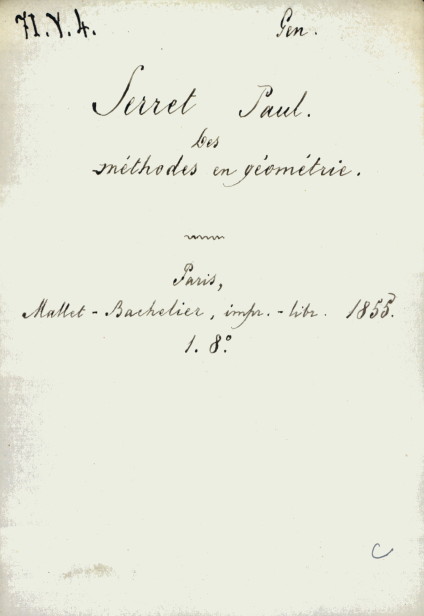 71.Y.4. Gen.
Serret Paul.
Des
méthodes en géométrie.
Paris,
Mallet-Bachelier, impr.-libr. 1855.
1. 8º
C